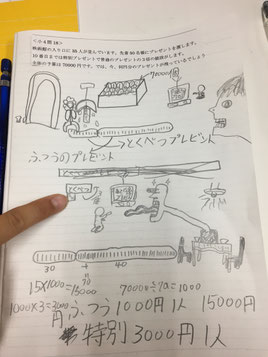 <小4問18>
映画館の入り口に35人が並んでいます。先着50名様にプレゼントを渡します。
10番目までは特別プレゼントで普通のプレゼントの3倍の値段がします。
全体の予算は70000円です。では、今、何円分のプレゼントが残っているでしょう
70000円
とくべつプレゼント
ふつうのプレゼント
とくべつ
30
40
15×1000=
15000
70000÷70=1000
1000×3=3000
円
ふつう1000円1人
15000
円
特別3000円1人